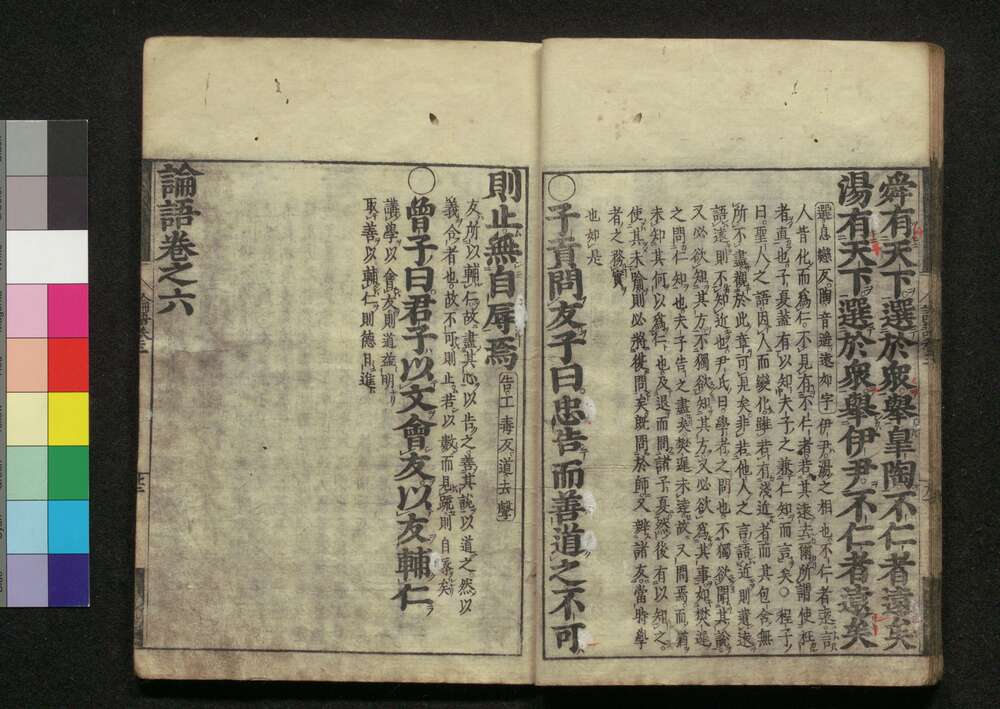 舜有天下選於衆舉皐陶不仁者遠矣
湯有天下選於衆舉伊尹不仁者遠矣
選息戀反陶音遙遠如字 伊尹湯之相也不仁者遠言
人皆化而爲仁不見有不仁者若其遠去爾所謂使枉
者直也子夏蓋有以知夫子之兼仁知而言矣○程子
曰聖人之語因人而變化雖若有淺近者而其包含無
所不盡觀於此章可見矣非若他人之言語近則遺遠
語遠則不知近也尹氏曰學者之問也不獨欲聞其說
又必欲知其方不獨欲知其方又必欲爲其事如樊遲
之問仁知也夫子告之盡矣樊遲未達故又問焉而猶
未知其何以爲仁也及退而問諸子夏然後有以知之
使其未喻則必將復問矣既問於師又辨諸友當時學
者之務實
也如是
○子貢問友子曰忠告而善道之不可
則止無自辱焉
告工毒反道去聲
友所以輔仁故盡其心以告之善其說以道之然以
義合者也故不可則止若以數而見疏則自辱矣
○曾子曰君子以文會友以友輔仁
講學以會友則道益明
取善以輔仁則德日進
論語卷之六